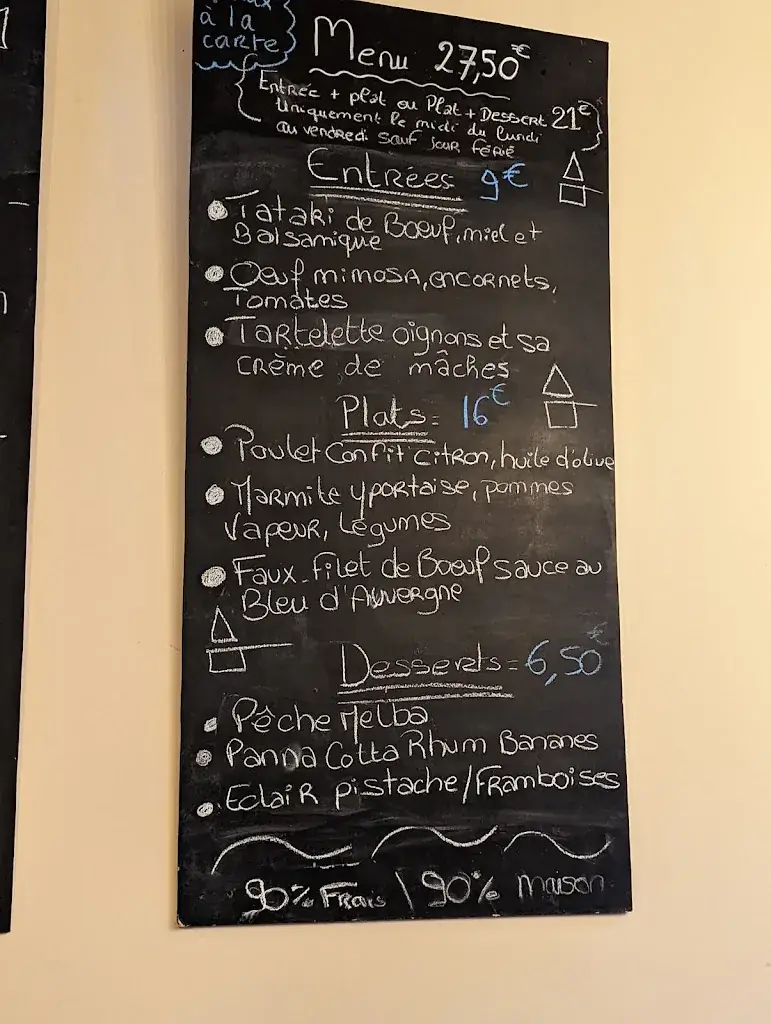 à la
carte
Menu 27,50€
Entrée + plat ou Plat + Dessert 21€
Uniquement le midi du lundi
au vendredi sauf jour férié
Entrées 9€
Tataki de Boeuf, miel et
Balsamique
Oeuf mimosa, encornets,
Tomates
Tartelette oignons et sa
crème de mâches
Plats: 16€
Poulet Confit citron, huile d'olive
Marmite yportaise, pommes
Vapeur, Légumes
Faux-filet de Boeuf sauce au
Bleu d'Auvergne
Desserts = 6,50€
Pêche Melba
Panna Cotta Rhum Bananes
Eclair pistache/Framboises
90% Frais \ 90% maison